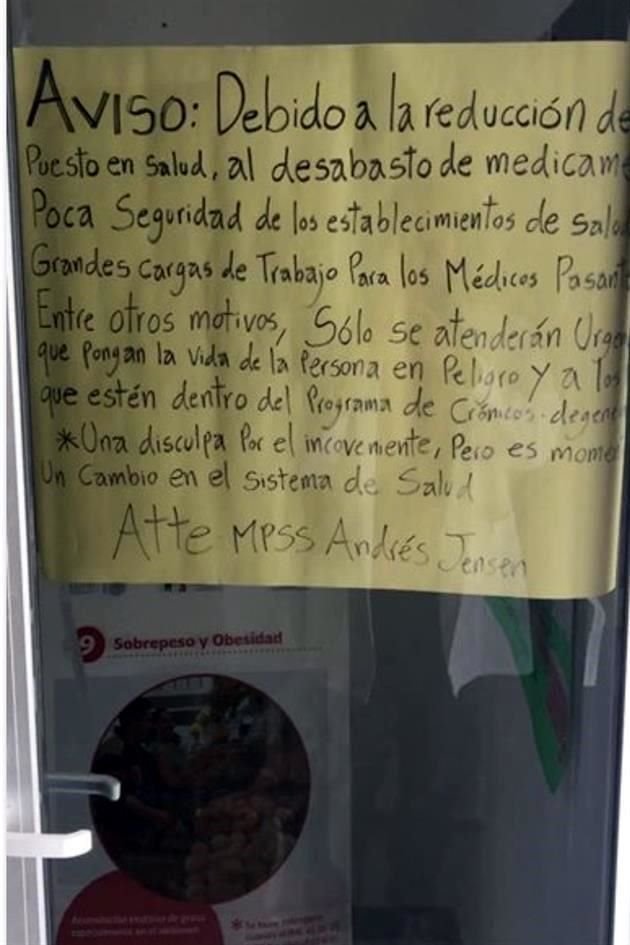 AVISO: Debido a la reducción de
Puesto en salud, al desabasto de medicam
Poca Seguridad de los establecimientos de salu
Grandes cargas de Trabajo Para los Médicos Pasant
Entre otros motivos, Sólo se atenderán Urge
que Pongan la vida de la Persona en Peligro y a los
que estén dentro del Programa de Crónicos-degene
*Una disculpa Por el incoveniente, Pero es mome
Un Cambio en el Sistema de Salud
Atte MPSS Andrés Jensen
9 Sobrepeso y Obesidad